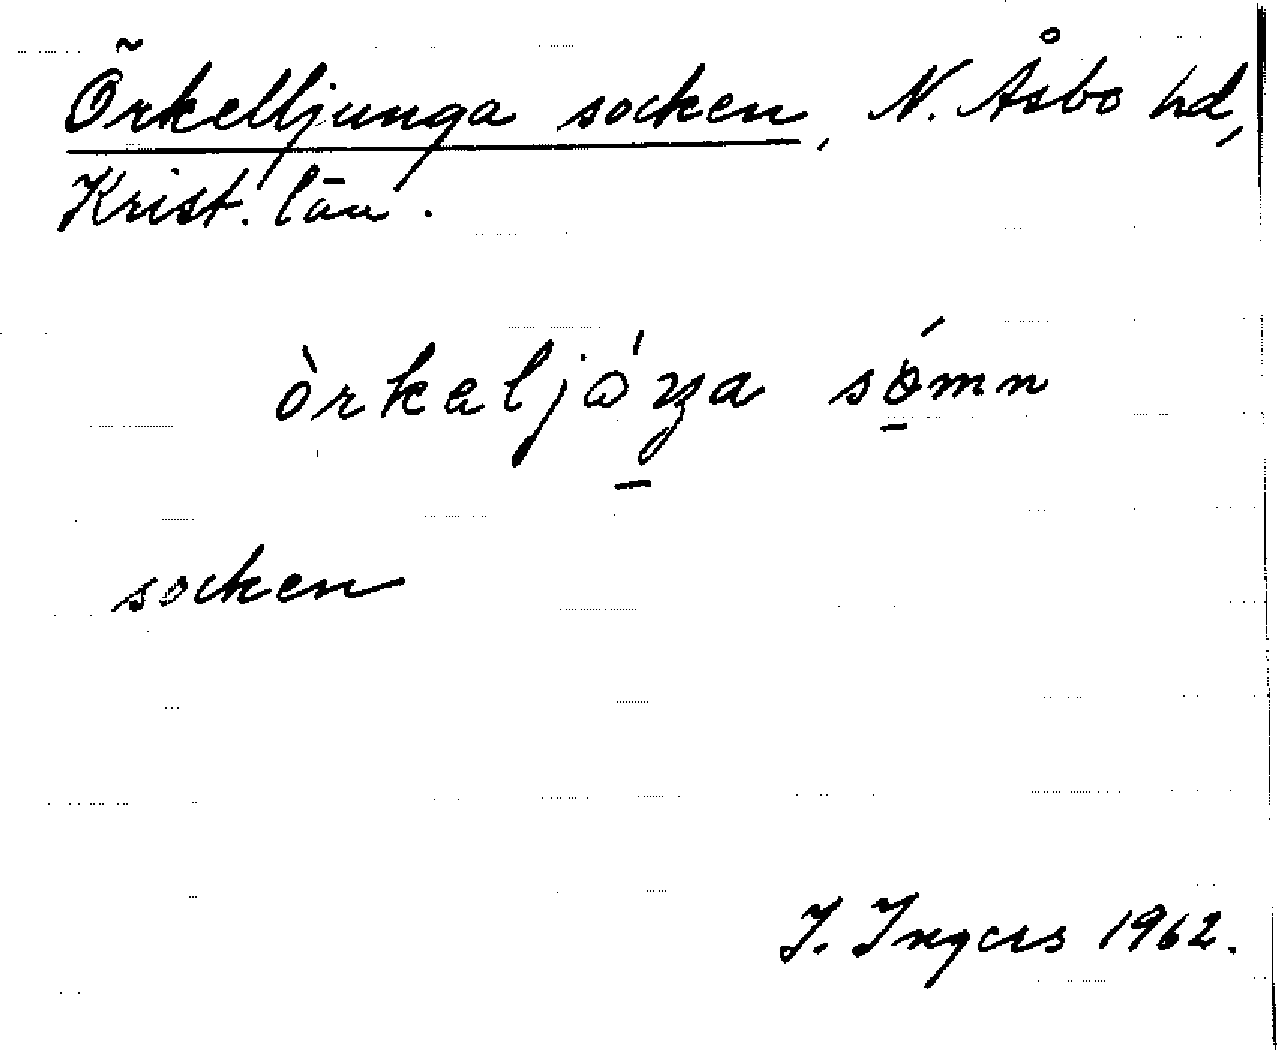 Örkelljunga socken, N. Åsbo hd,
Krist. län.
òrkəlj sómn
socken
I. Ingers 1962.